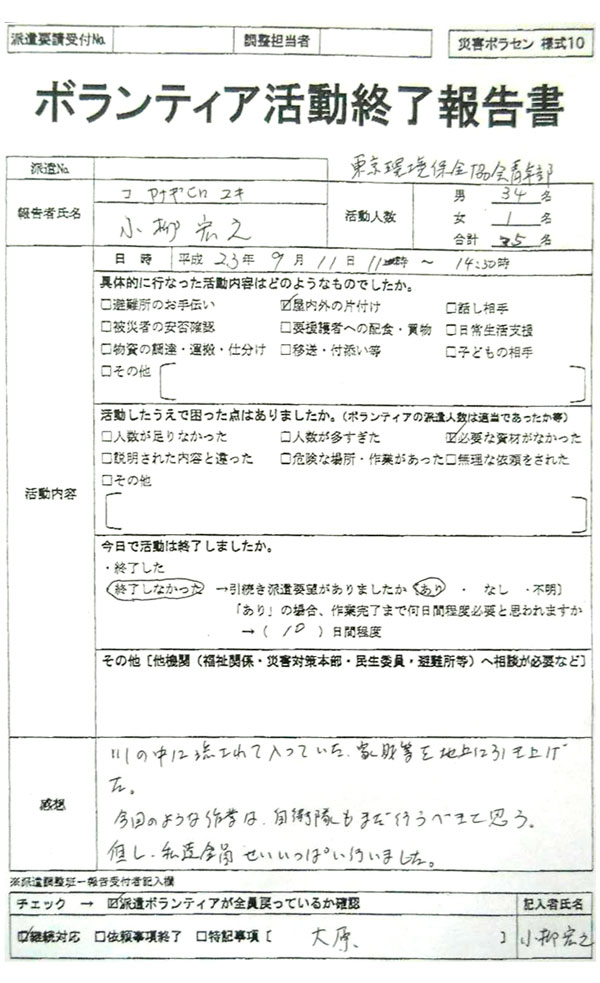 派遣要請受付No.
調整担当者
災害ボラセン 様式10
ボランティア活動終了報告書
派遣No.
東京環境保全協会青年部
報告者氏名
コヤナギ ヒロユキ
小柳宏之
活動人数
男 34 名
女 1 名
合計 35 名
日時 平成 23年 9月 11日 11時 ～ 14:30時
活動内容
具体的に行なった活動内容はどのようなものでしたか。
□避難所のお手伝い ☑屋内外の片付け □話し相手
□被災者の安否確認 □要援護者への配食・買物 □日常生活支援
□物資の調達・運搬・仕分け □移送・付添い等 □子どもの相手
□その他
活動したうえで困った点はありましたか。(ボランティアの派遣人数は適当であったか等)
□人数が足りなかった □人数が多すぎた ☑必要な資材がなかった
□説明された内容と違った □危険な場所・作業があった □無理な依頼をされた
□その他
今日で活動は終了しましたか。
・終了した
終了しなかった →引続き派遣要望がありましたか〔あり ・ なし ・不明〕
「あり」の場合、作業完了まで何日間程度必要と思われますか
→（ 10 ）日間程度
その他［他機関（福祉関係・災害対策本部・民生委員・避難所等）へ相談が必要など］
感想
川の中に流されて入っていた、家財等を地上に引き上げ
た。
今回のような作業は、自衛隊もまだ行うべきで思う。
但し、私達全員せいいっぱい行いました。
※派遣調整班－報告受付者記入欄
チェック → ☑派遣ボランティアが全員戻っているか確認
記入者氏名
☑継続対応 □依頼事項終了 □特記事項［ 大原 ］
小柳宏之